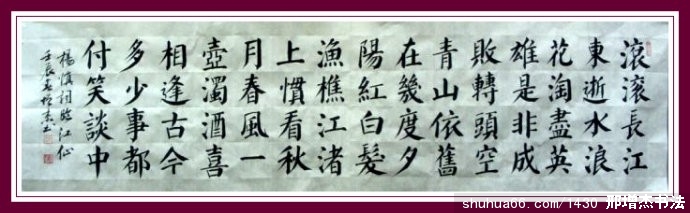 滾滾長江
東逝水浪
花淘盡英
雄是非成
敗轉頭空
青山依舊
在幾度夕
陽紅白髮
漁樵江渚
上慣看秋
月春風一
壺濁酒喜
相逢古今
多少事都
付笑談中
楊慎詞臨江仙
壬辰春增杰书
shuhua66.com/1430 邢增杰书法